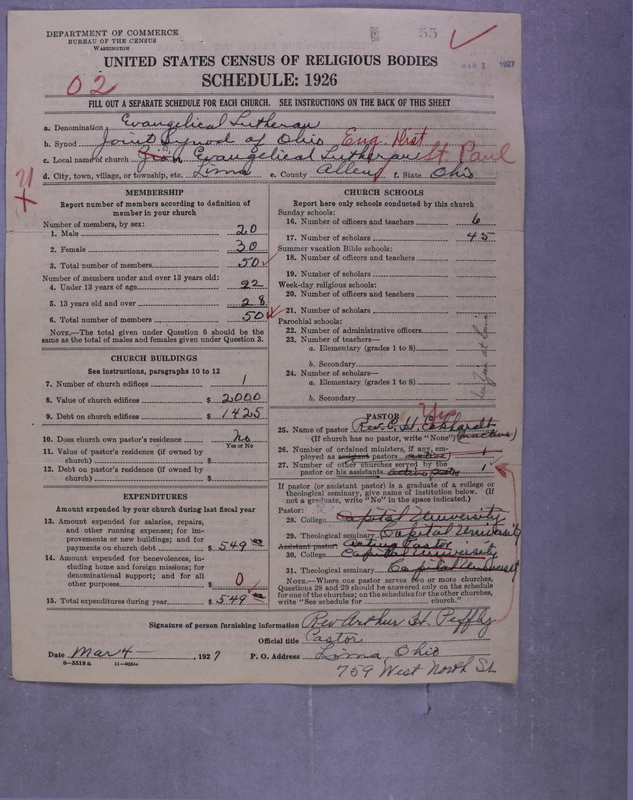 DEPARTMENT OF COMMERCE
BUREAU OF THE CENSUS
WASHINGTON
55
MAR 2 1927
UNITED STATES CENSUS OF RELIGIOUS BODIES
SCHEDULE: 1926
02
FILL OUT A SEPARATE SCHEDULE FOR EACH CHURCH. SEE INSTRUCTIONS ON THE BACK OF THIS SHEET
a. Denomination Evangelical Lutheran
b. Synod Joint Synod of Ohio Eng. Dist
c. Local name of church Zion Evangelical Lutheran St. Paul
d. City, town, village, or township, etc. Lima e. County Allen f. State Ohio
MEMBERSHIP
Report number of members according to definition of
member in your church
Number of members, by sex:
1. Male 20
2. Female 30
3. Total number of members 50
Number of members under and over 13 years old:
4. Under 13 years of age 22
5. 13 years old and over 28
6. Total number of members 50
NOTE.—The total given under Question 6 should be the
same as the total of males and females given under Question 3.
CHURCH BUILDINGS
See instructions, paragraphs 10 to 12
7. Number of church edifices 1
8. Value of church edifices $ 2000
9. Debt on church edifices $ 1425
10. Does church own pastor's residence No
Yes or No
11. Value of pastor's residence (if owned by
church) $
12. Debt on pastor's residence (if owned by
church) $
EXPENDITURES
Amount expended by your church during last fiscal year
13. Amount expended for salaries, repairs,
and other running expenses; for im-
provements or new buildings; and for
payments on church debt $ 549
14. Amount expended for benevolences, in-
cluding home and foreign missions; for
denominational support; and for all
other purposes $ 0
15. Total expenditures during year $ 549
CHURCH SCHOOLS
Report here only schools conducted by this church
Sunday schools:
16. Number of officers and teachers 6
17. Number of scholars 45
Summer vacation Bible schools:
18. Number of officers and teachers
19. Number of scholars
Week-day religious schools:
20. Number of officers and teachers
21. Number of scholars
Parochial schools:
22. Number of administrative officers
23. Number of teachers—
a. Elementary (grades 1 to 8)
b. Secondary
24. Number of scholars—
a. Elementary (grades 1 to 8)
b. Secondary
PASTOR Yes
25. Name of pastor Rev. C. H. Eckhardt
(If church has no pastor, write "None") (inactive)
26. Number of ordained ministers, if any, em-
ployed as assistant pastors active 1
27. Number of other churches served by the
pastor or his assistants active pastor 1
If pastor (or assistant pastor) is a graduate of a college or
theological seminary, give name of institution below. (If
not a graduate, write "No" in the space indicated.)
Pastor:
28. College Capital University
29. Theological seminary Capital University
Assistant pastor: Active Pastor
30. College Capital University
31. Theological seminary Capital University
NOTE.—Where one pastor serves two or more churches,
Questions 28 and 29 should be answered only on the schedule
for one of the churches; on the schedules for the other churches,
write "See schedule for church."
Signature of person furnishing information Rev Arthur H.
Official title Pastor
Date Mar 4 —, 1927 P. O. Address Lima, Ohio
759 West North St.